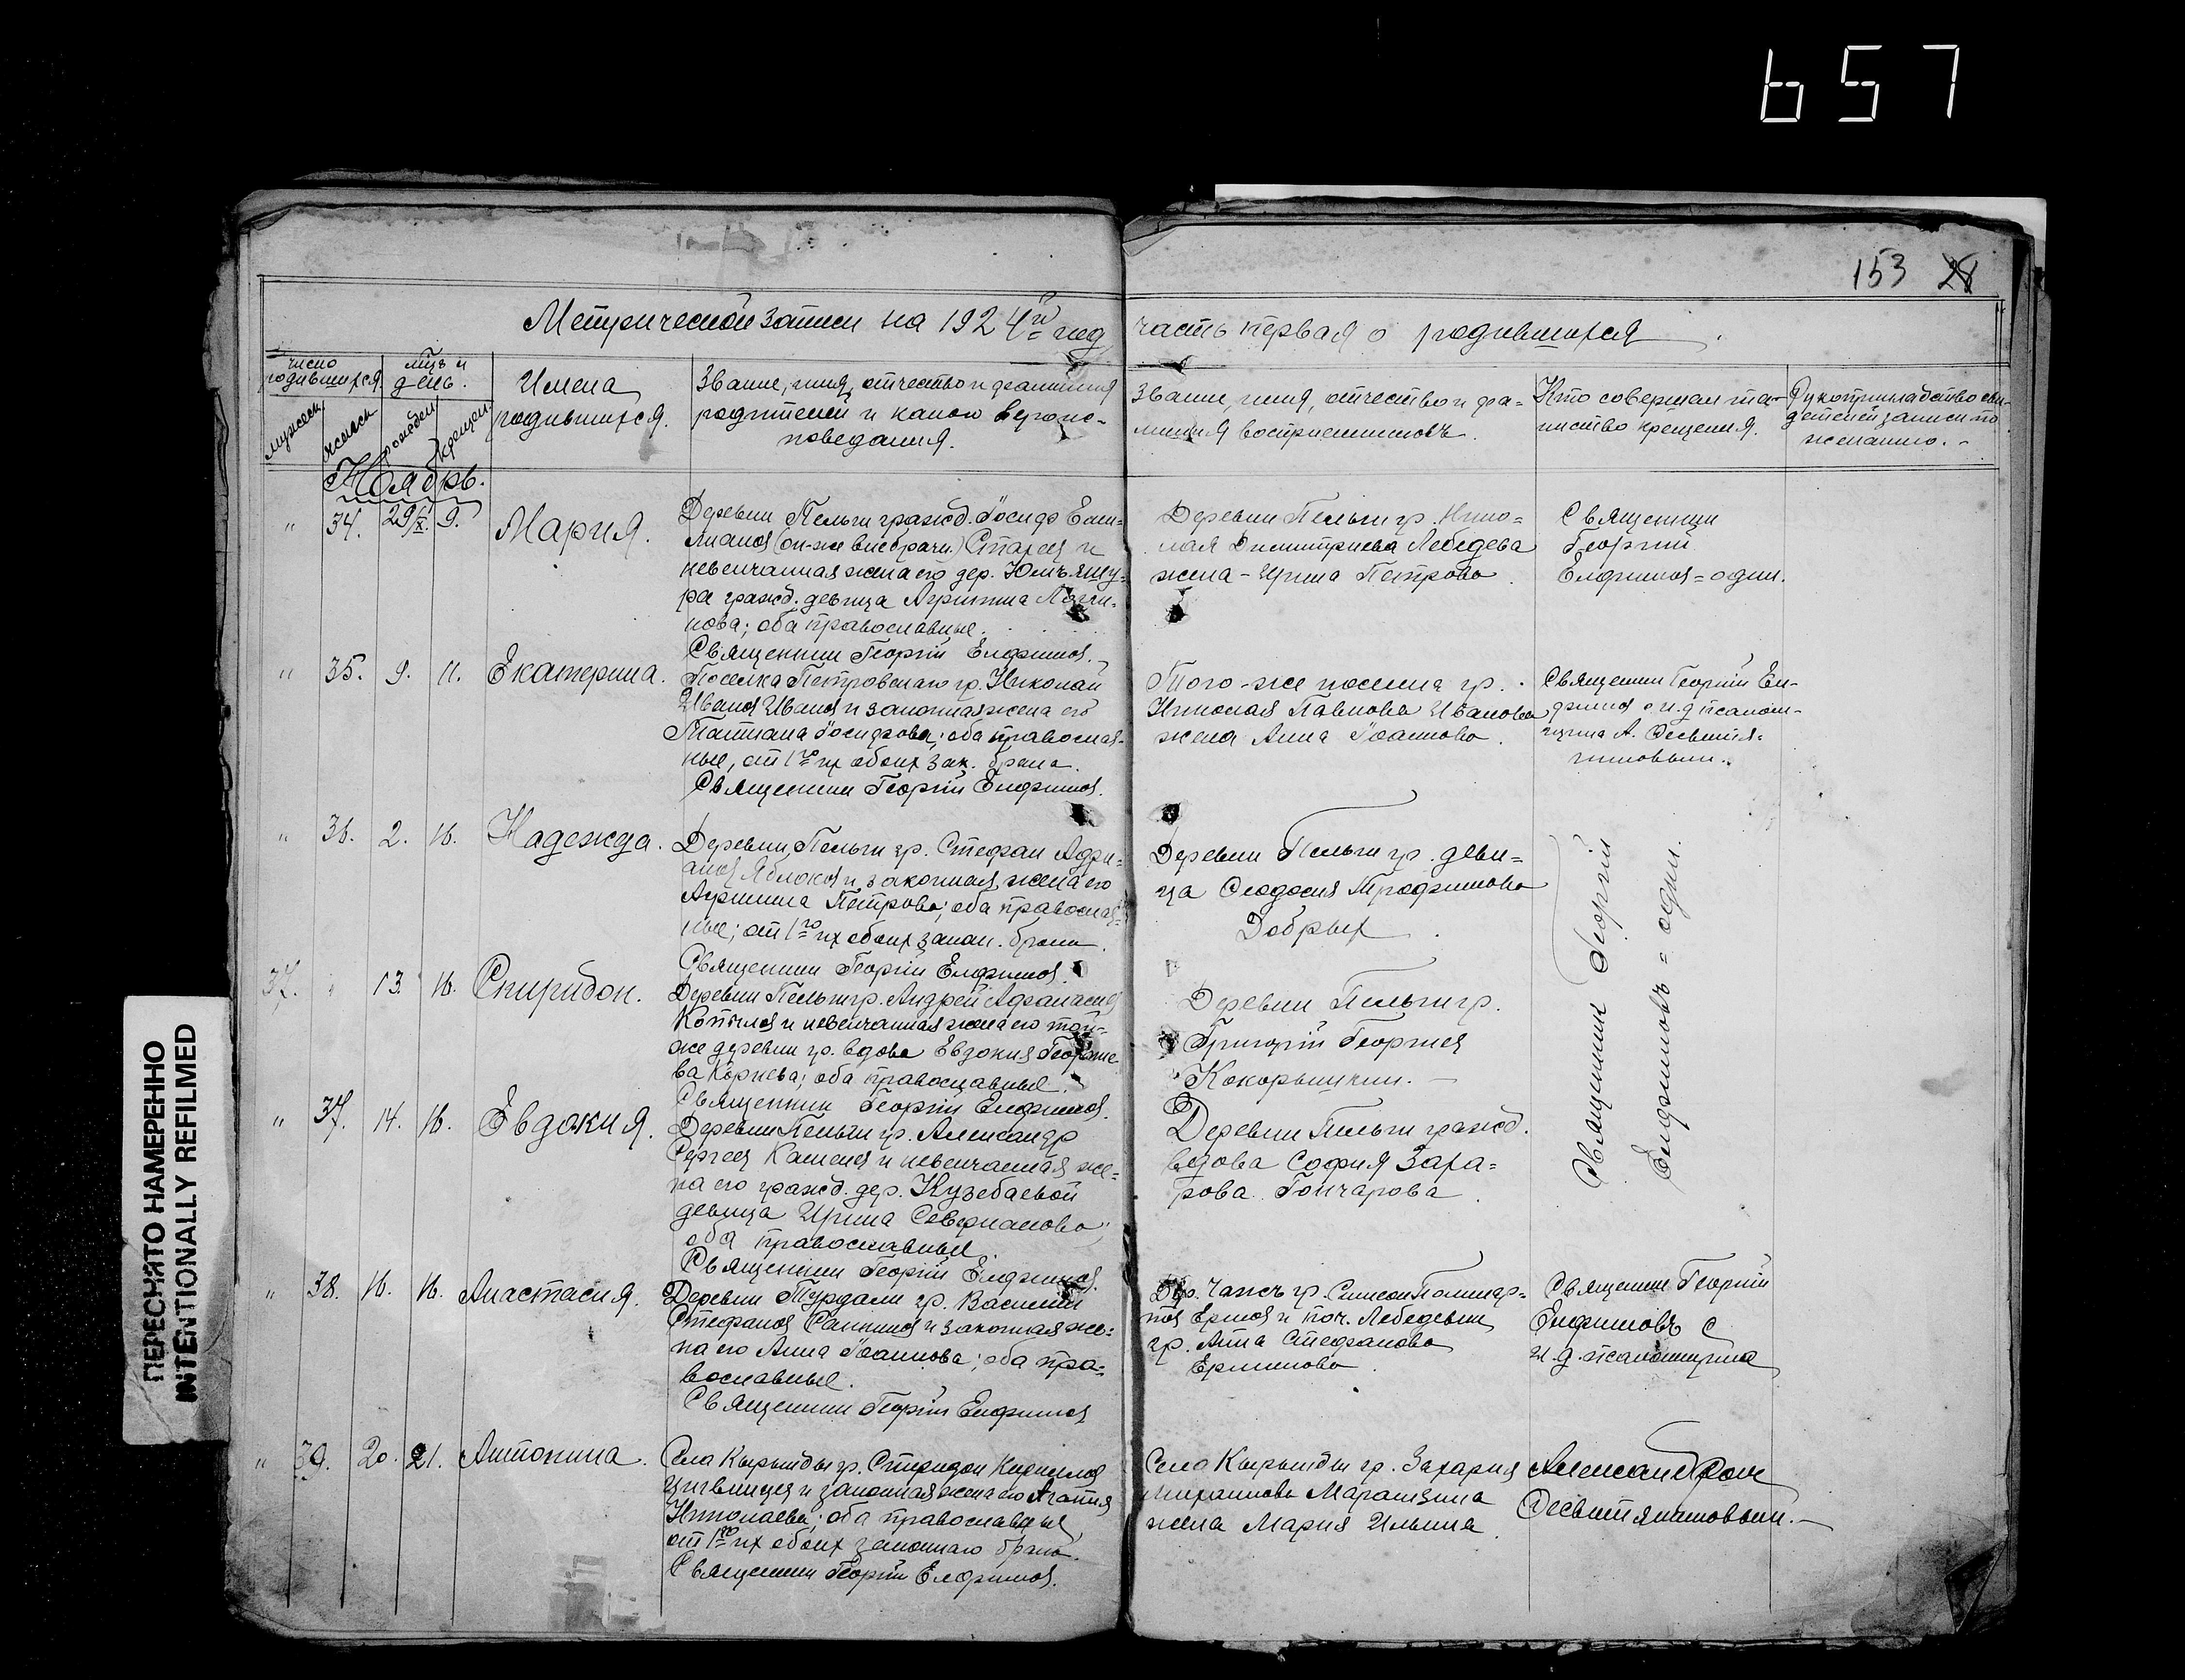 657
153 28
Метрической записи на 1924й год часть первая о родившихся.
число родившихся.
мужеск.
женск.
мцъ и день.
рожден.
крещен.
Имена родившихся.
Звание, имя, отчество и фамилия
родителей и какого вероис-
поведания.
Звание, имя, отчество и фа-
милия восприемниковъ.
Кто совершал та-
инство крещения.
Рукоприкладство сви-
детелей записи по
желанию.
Ноябрь.
" 34. 29/X. 9. Мария.
Деревни Пельги гражд. Іосиф Еми-
лианов (он-же внебрачн.) Старев и
невенчанная жена его дер. Юмъяшу-
ра гражд. девица Агрипина Логги-
нова; оба православные.
Священник Георгій Елфимов.
Деревни Пельги гр. Нико-
лая Димитриева Лебедева
жена - Ирина Петрова.
Священник
Георгий
Елфимов = один.
" 35. 9. 11. Екатерина.
Поселка Петровскаго гр. Николай
Иванов Иванов и законная жена его
Татиана Іосифова; оба православ-
ные, от 1го их обоих зак. брака.
Священник Георгій Елфимов.
Того-же поселка гр.
Николая Павлова Иванова
жена Анна Іоаннова.
Священник Георгий Ел-
фимов с и.д. псалом-
щика А. Десвитя-
никовым.
" 36. 2. 16. Надежда.
Деревни Пельги гр. Стефан Адри-
анов Яблоков и законная жена его
Агрипина Петрова; оба православ-
ные; от 1го их обоих закон. брака.
Священник Георгій Елфимов.
Деревни Пельги гр. деви-
ца Феодосия Трофимова
Добрых.
Священник Георгій
Елфимовъ = один.
37. " 13. 16. Спиридон.
Деревни Пельги гр. Андрей Афанасиев
Копылов и невенчанная жена его той-
же деревни гр. вдова Евдокия Георгие-
ва Корнева; оба православные.
Священник Георгій Елфимов.
Деревни Пельги гр.
Григорій Георгиев
Кокорышкин.
" 37. 14. 16. Евдокия.
Деревни Пельги гр. Александр
Сергеев Каменев и невенчанная же-
на его гражд. дер. Кузебаевой
девица Ирина Северианова;
оба православные.
Священник Георгій Елфимов.
Деревни Пельги гражд.
вдова София Заха-
рова Гончарова.
" 38. 16. 16. Анастасия.
Деревни Турдали гр. Василий
Стефанов Санников и законная же-
на его Анна Іоаннова; оба пра-
вославные.
Священник Георгій Елфимов
Дер. Чажъ гр. Симеон
и поч. Лебедевки
гр. Анна Стефанова
Священник Георгій
Елфимовъ с
и.д. псаломщика
" 39. 20. 21. Антонина.
Села Кырынды гр. Спиридон Кириллов
и законная жена его Агапия
Николаева; оба православные,
от 1го их обоих законнаго брака.
Священник Георгій Елфимов.
Села Кырынды гр. Захария
жена Мария Ильина.
Александром
Десвитяниковым.
ПЕРЕСНЯТО НАМЕРЕННО
INTENTIONALLY REFILMED